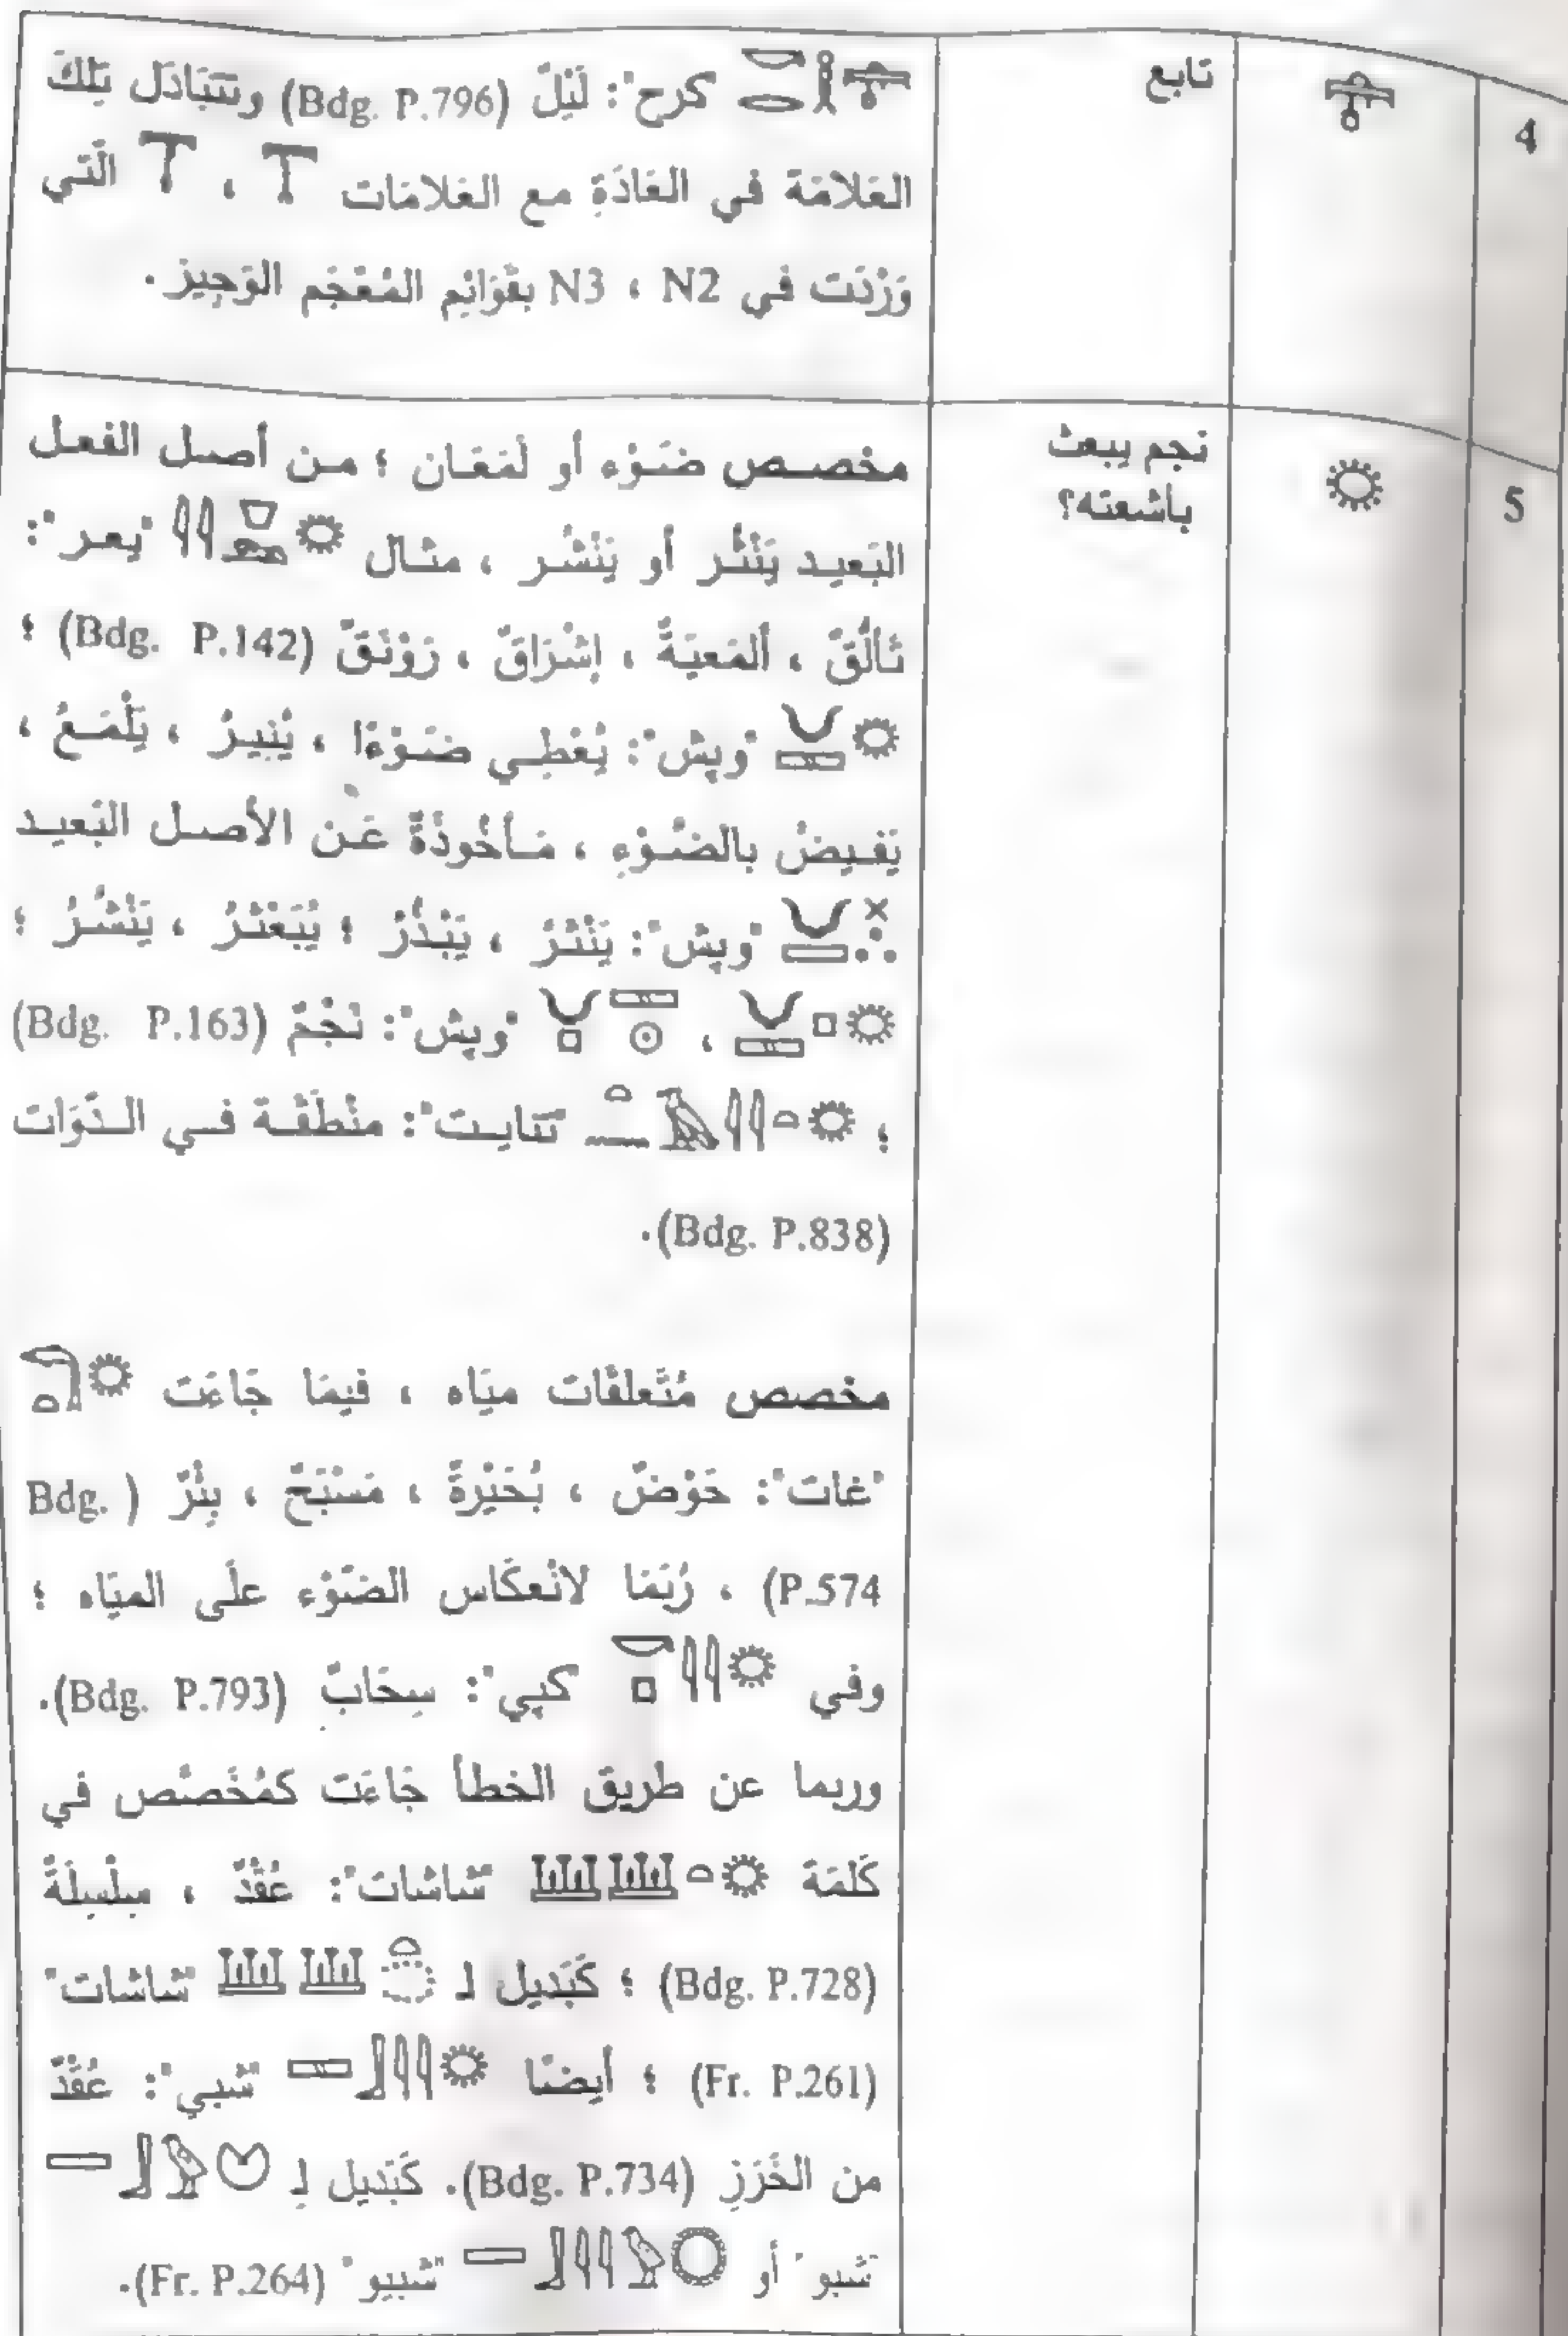 4
تابع
"كرح": لَيْلٌ (Bdg. P.796) وتتَبَادَل تِلكَ
العَلامَة في العَادَةِ مع العَلامَات ، الَّتي
وَرْدَت في N2 ، N3 بقَوَائِم المُعْجَم الوَجِيز.
5
نجم يبعث
بأشعته؟
مخصص ضَوْء أو لَمَعَان ؛ من أصل الفعل
البَعيد يَنْثُر أو يَنْشُر ، مثال "يعر":
تَألُّقٌ ، ألمَعيَةٌ ، إشْرَاقٌ ، رَوْنَقٌ (Bdg. P.142) ؛
"وپش": يُعْطِي ضَوْءًا ، يُنيِرُ ، يَلْمَعُ ،
يَفيضُ بالضَّوْءِ ، مَأخُوذَةٌ عَن الأصل البَعيد
"وپش": يَنْثُرُ ، يَبْذُرُ ؛ يُبَعْثرُ ، يَنْشُرُ ؛
، "وپش": نَجْمٌ (Bdg. P.163)
؛ "تنايت": منْطَقَة في الدّوَات
(Bdg. P.838).
مخصص مُتَعلقَات ميَاه ، فيمَا جَاءَت
"غات": حَوْضٌ ، بُحَيْرةٌ ، مَسْبَحٌ ، بِئْرٌ (Bdg.
P.574) ، رُبَمَا لانْعكَاس الضَّوْء علَى الميَاه ؛
وفي "كپي": سِحَابٌ (Bdg. P.793).
وربما عن طريق الخطأ جَاءَت كمُخَصَّص في
كَلمَة "شاشات": عُقْدٌ ، سِلْسِلَةٌ
(Bdg. P.728) ؛ كَبَديل لـ "شاشات"
(Fr. P.261) ؛ أيضًا "شبي": عُقْدٌ
من الخَرَزِ (Bdg. P.734). كَبَديل لِـ
"شبو" أو "شبيو" (Fr. P.264).